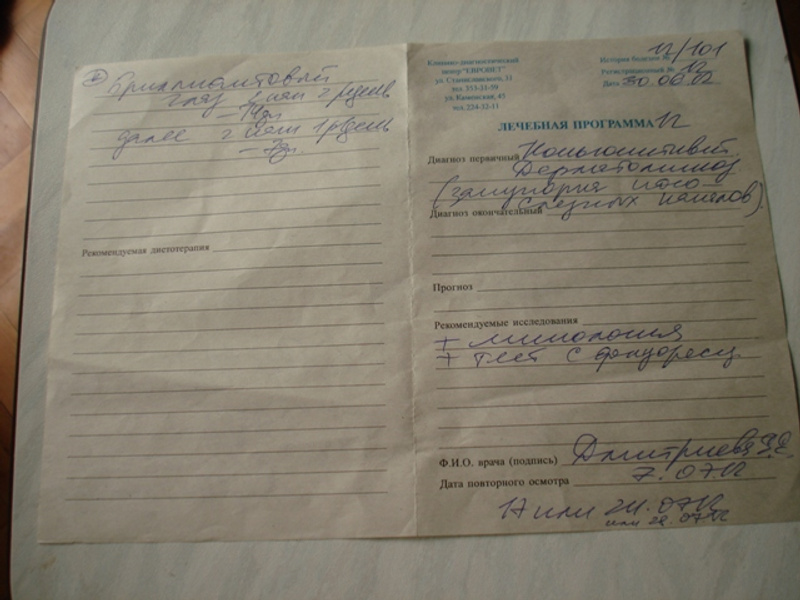 II Бриллиантовый
глаз 1 кап 2 р/день
— 14дн.
далее 2 кап 1 р/день
Рекомендуемая диетотерапия
Клинико-диагностический
центр "ЕВРОВЕТ"
ул. Станиславского, 31
тел. 353-31-59
ул. Каменская, 45
тел. 224-32-11
История болезни № 12/101
Регистрационный № 12
Дата 30.06.02
ЛЕЧЕБНАЯ ПРОГРАММА
Диагноз первичный Коньюнктивит.
Дерматомикоз
(закупорка носо-
слезных каналов).
Диагноз окончательный
Прогноз
Рекомендуемые исследования
+ микология
+ тест с флюоресц.
Ф.И.О. врача (подпись) Дмитриева
Дата повторного осмотра 7.07.12
17 или 24.07.12
или 28.07.12